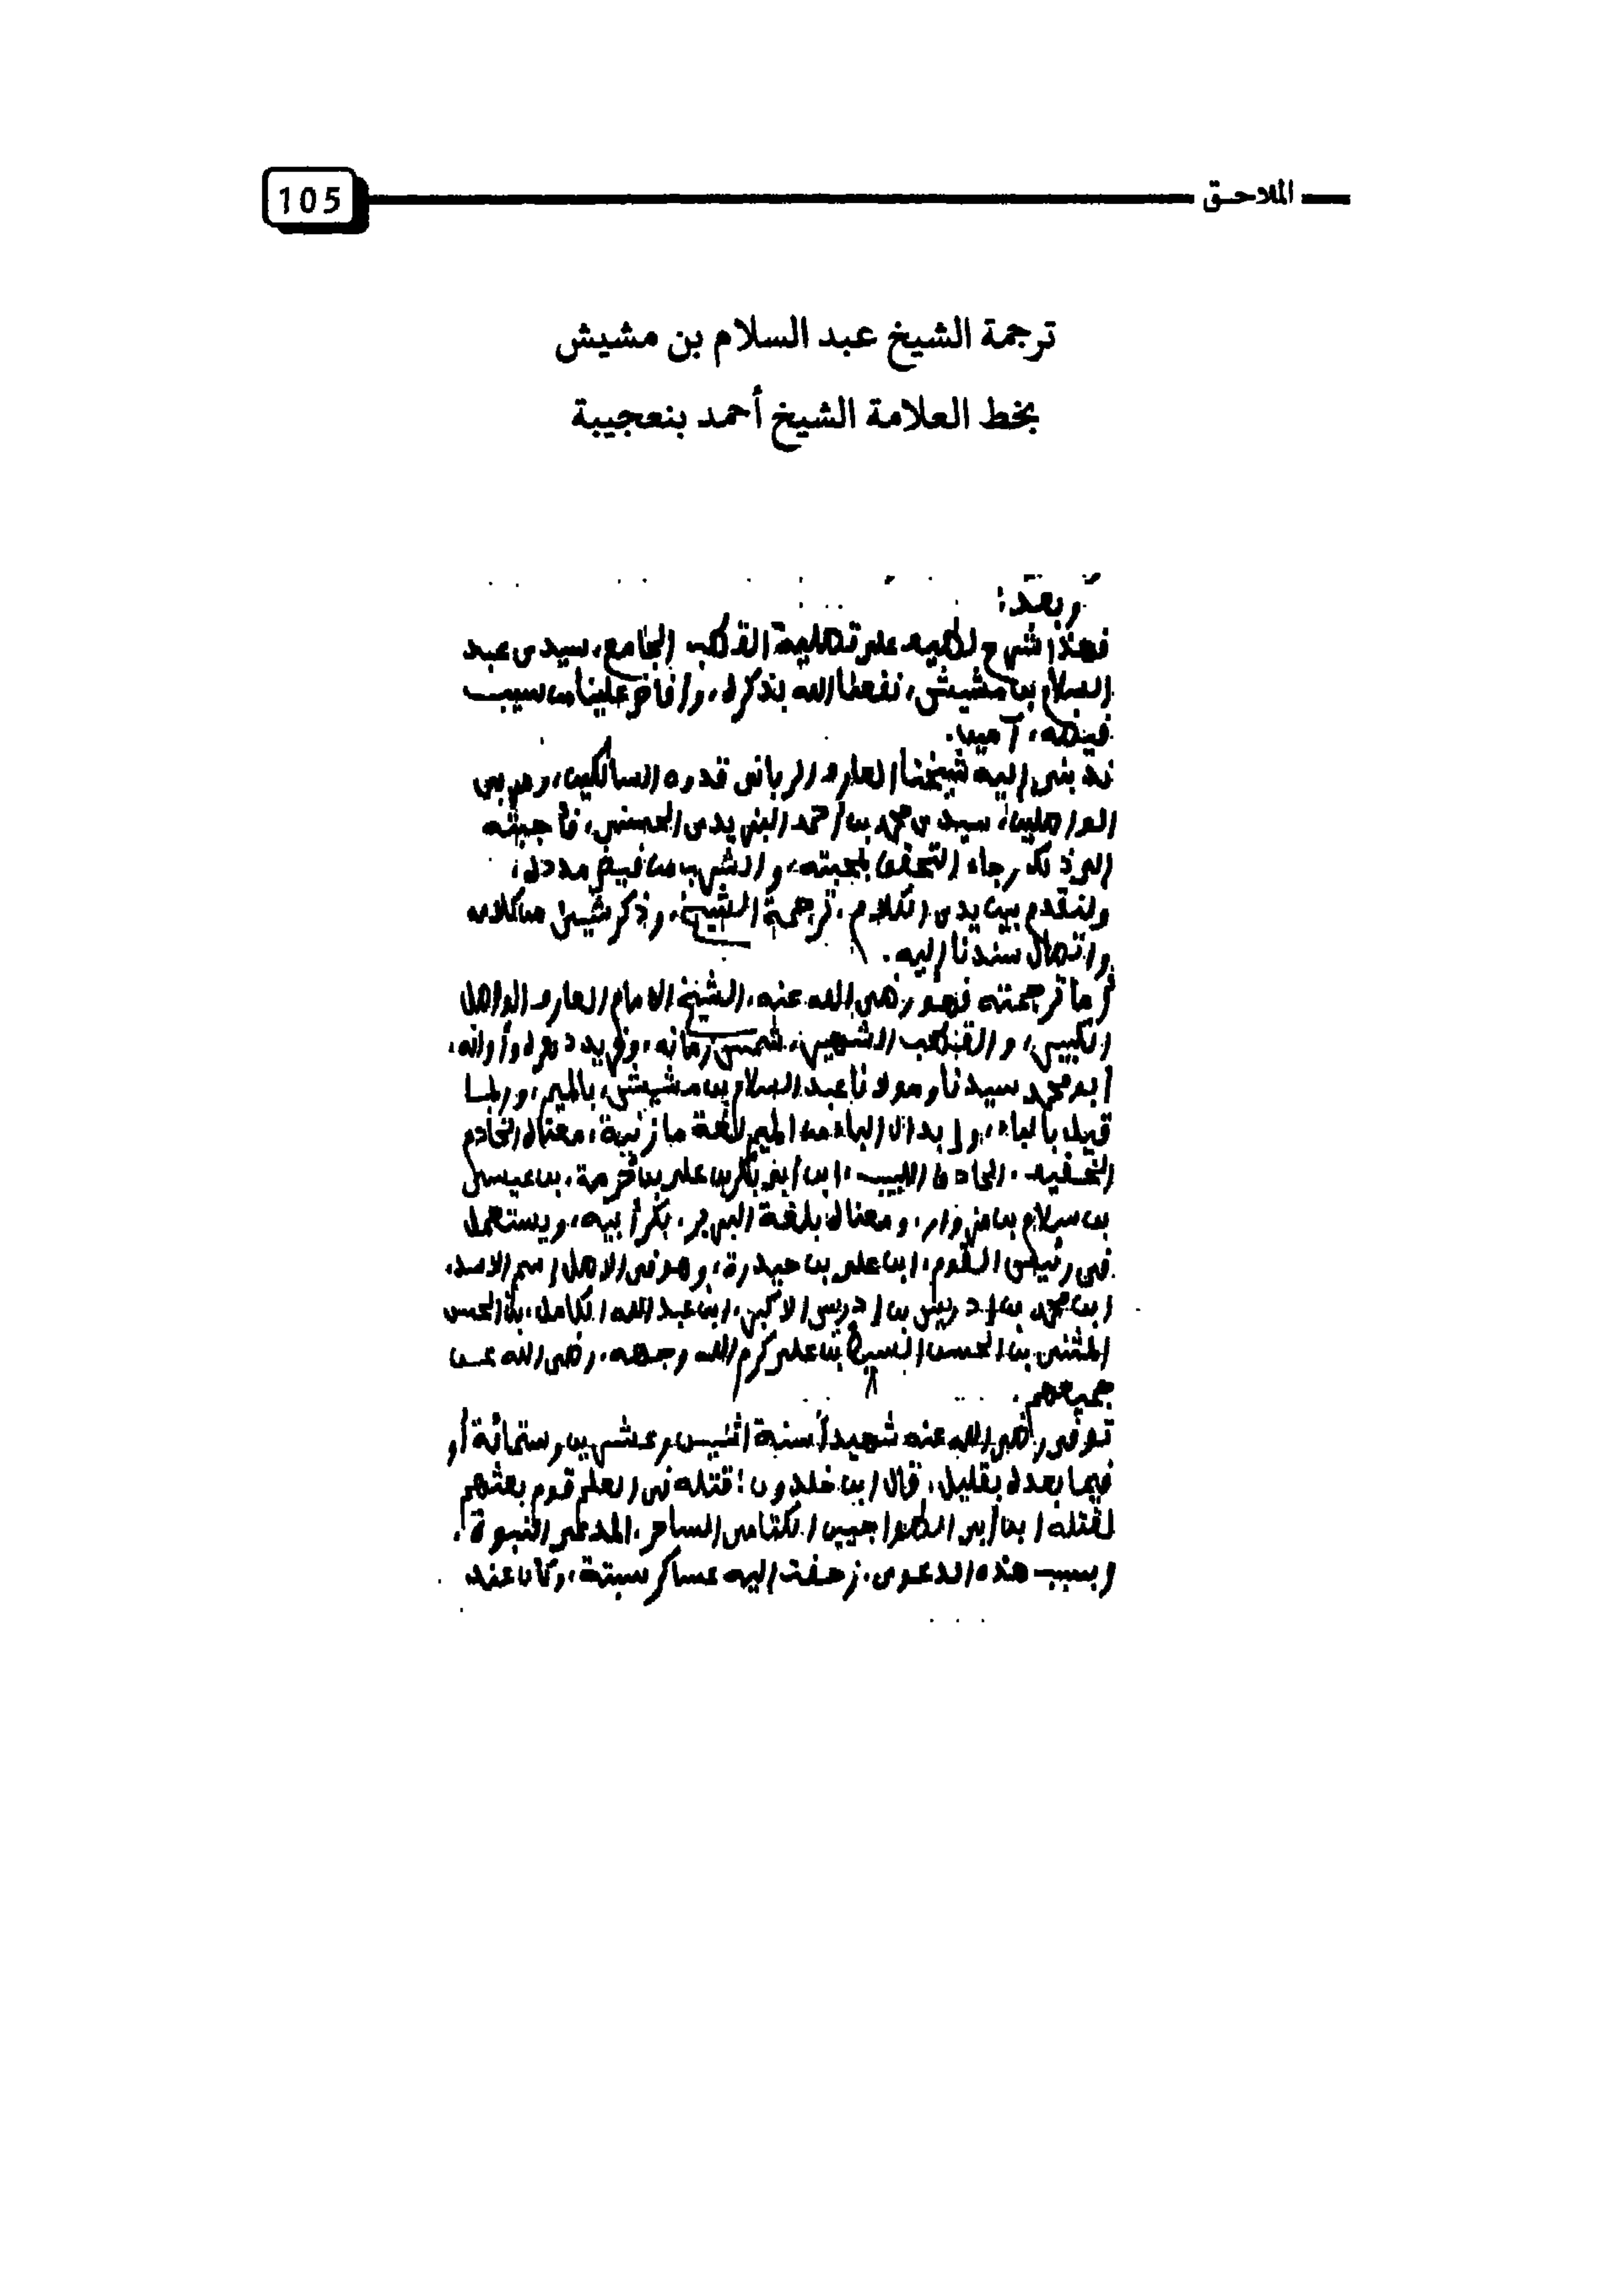 الملاحق
105
ترجمة الشيخ عبد السلام بن مشيش
بخط العلامة الشيخ أحمد بنعجيبة
وبعد:
فهذا شرح لطيف على تصلية القطب الجامع، سيدي عبد
السلام بن مشيش، نفعنا الله بذكره، وأفاض علينا من سيب
فيضه، آمين.
ندبني إليه شيخنا العارف الرباني قدوة السالكين، ومربي
الواصلين، سيدي محمد بن أحمد البزيدي الحسني، فأجبته
إلى ذلك رجاء التحقق بمحبته، والشرب من فيض مدده،
ولنقدم بين يدي الكلام، ترجمة الشيخ، وذكر شيئ من كلامه
واتصال سندنا إليه.
أما ترجمته فهو رضي الله عنه، الشيخ الامام العارف الواصل
الكبير، والقطب الشهير، شمس زمانه، وفريد دهره وأوانه،
أبو محمد سيدنا ومولانا عبد السلام بن مشيش، بالميم، وربما
قيل بالباء، وإبدال الباء من الميم لغة مازنية، معناه الخادم
الخفيف، الحاذق اللبيب، ابن أبي بكر بن علي بن حرمة، بن عيسى
بن سلام بن مزوار، ومعناه بلغة البربر، بكر أبيه، ويستعمل
في رئيس القوم، ابن علي بن حيدرة، وهو في الاصل إسم الاسد،
ابن محمد بن إدريس بن إدريس الاكبر، ابن عبد الله الكامل، بن الحسن
المثنى بن الحسن السبط بن علي كرم الله وجهه، رضي الله عن
جميعهم.
توفي رضي الله عنه شهيداً سنة اثنين وعشرين وستمائة أو
فيما بعده بقليل، قال ابن خلدون؛ قتله في العلم قوم بعثهم
لقتله ابن أبي الطواجين الكتامي الساحر، المدعي النبوة،
وبسبب هذه الدعوى، زحفت إليه عساكر سبتة، وكان عند